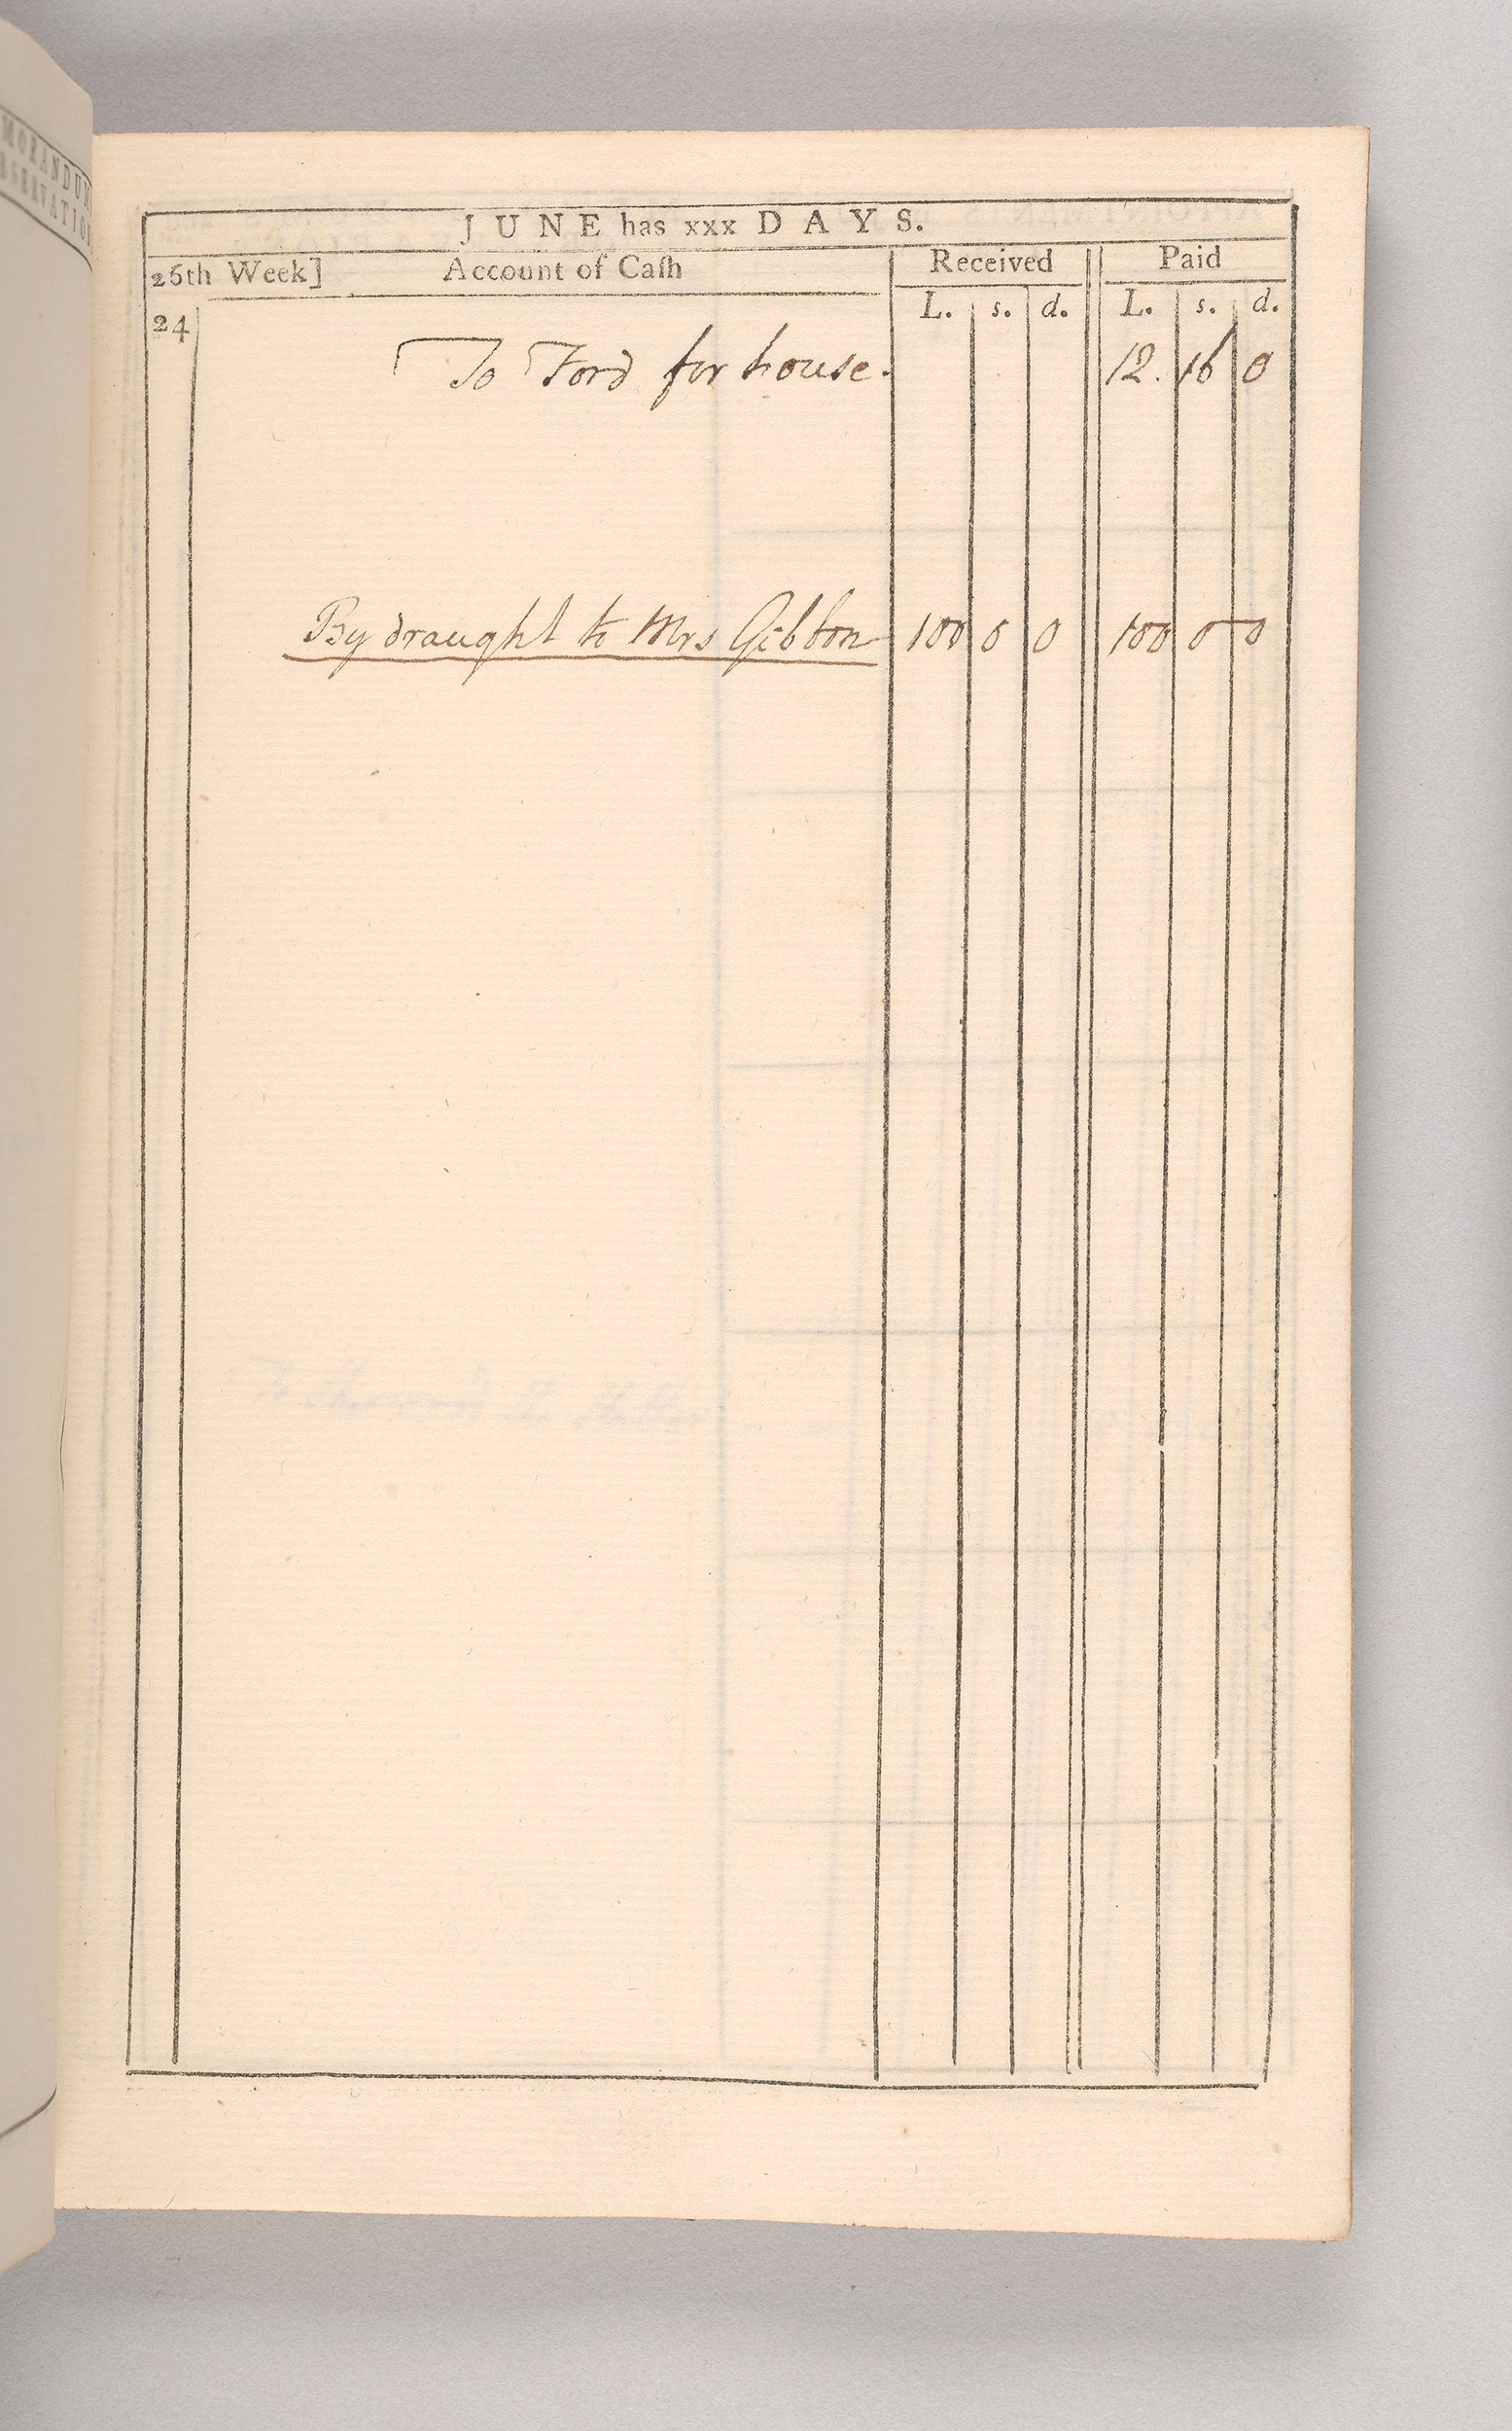 MORANDUM
SERVATION
JUNE has xxx DAYS.
26th Week] Account of Caſh Received Paid
L. s. d. L. s. d.
24
To Ford for house. 12. 16 0
By draught to Mrs Gibbon 100 0 0 100 0 0